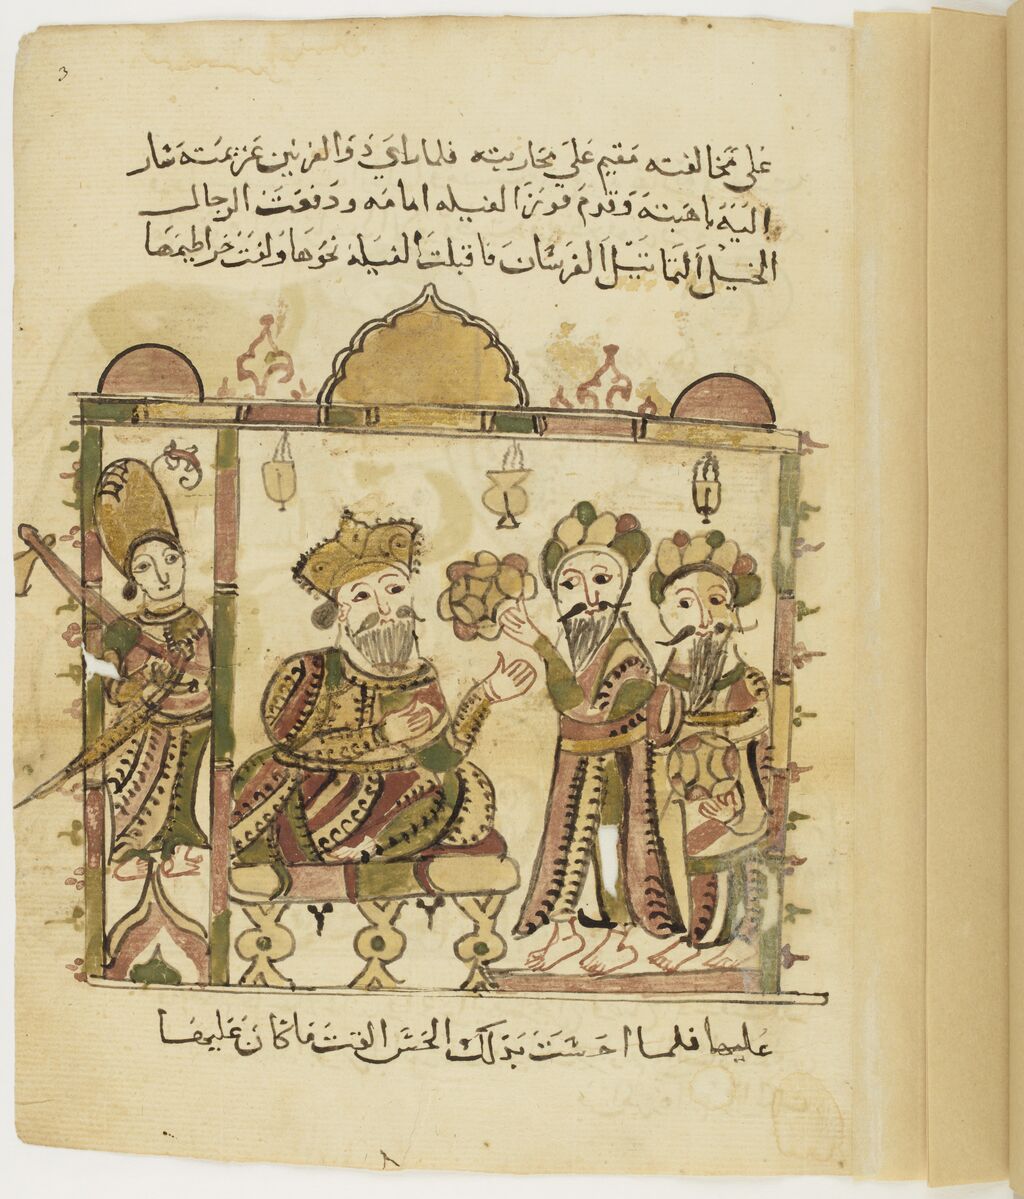 3
على مخالفته مقيم على محاربته فلما راي ذو القرنين عزيمته سار
اليه باهبته وقدم فور الفيله امامه ودفعت الرجال
الخيل التماثيل الفرسان فاقبلت الفيله نحوها ولفت خراطيمها
عليها فلما احست بذلك القت ما كان عليها